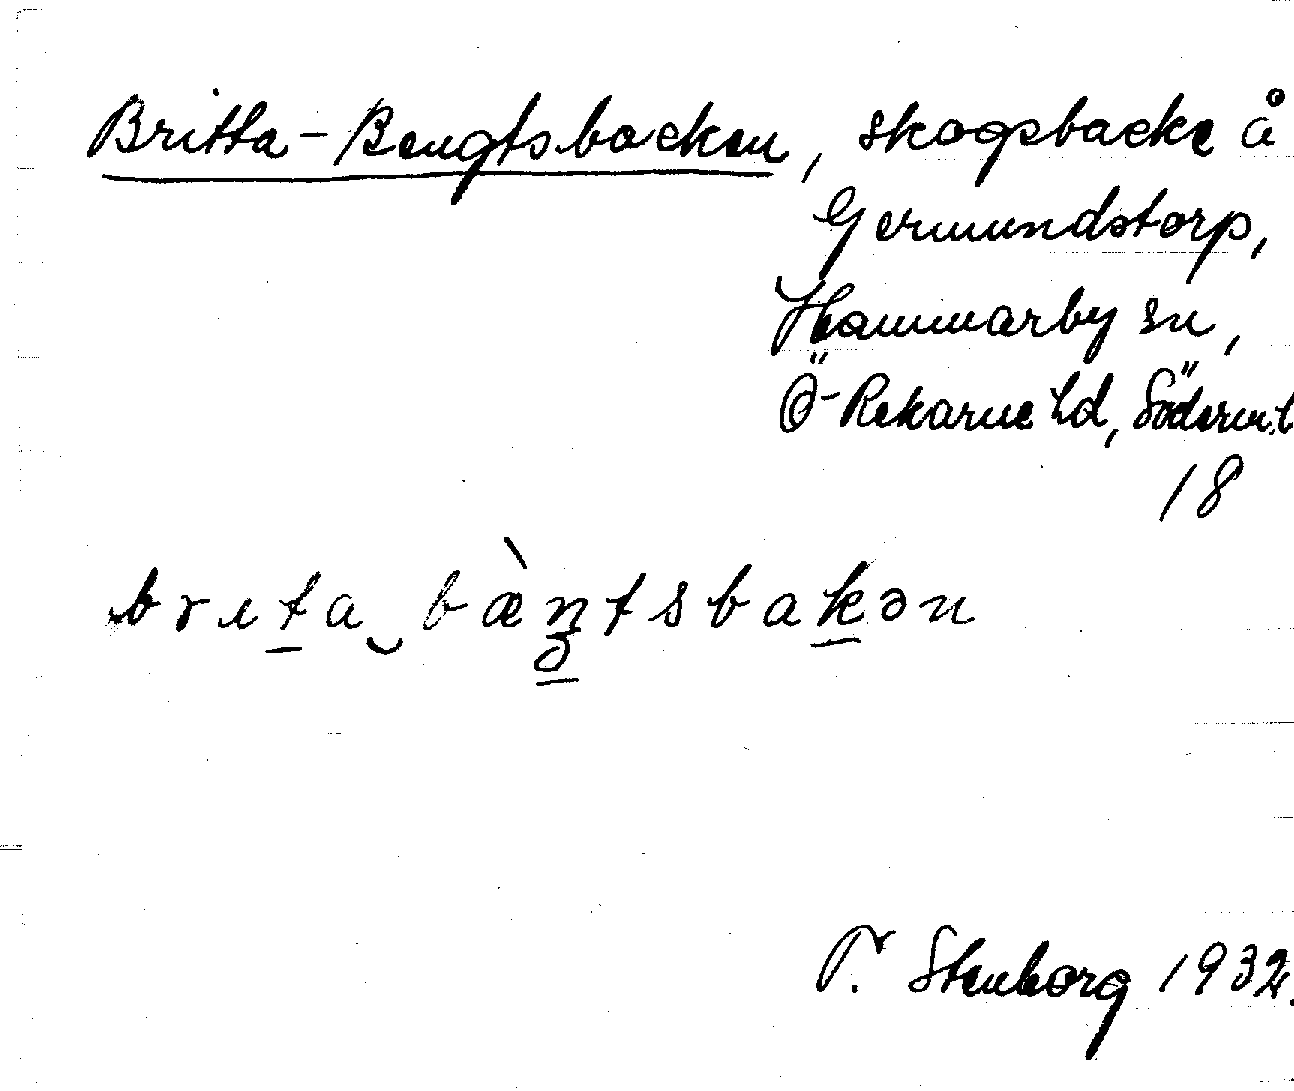 Britta-Bengtsbacken, skogsbacke å
Germundstorp,
Hammarby sn,
Ö-Rekarne hd, Söderml
18
brıta‿bæ̀ŋtsbakən
T. Stenborg 1932.